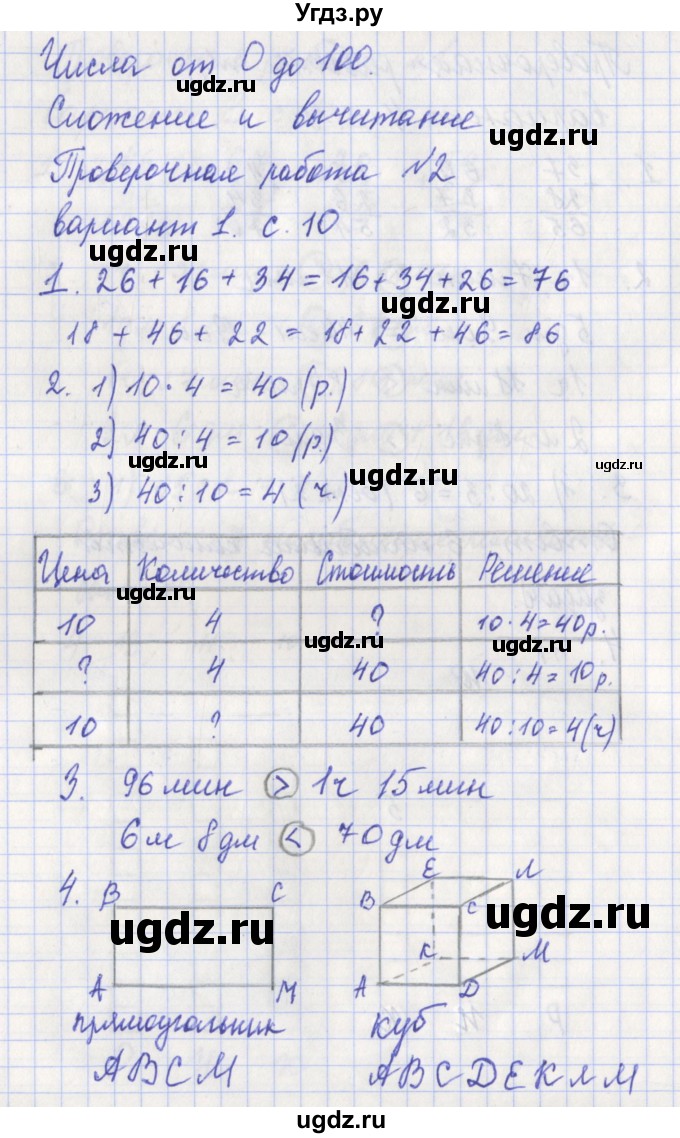 Угдз.ру
Числа от 0 до 100.
Сложение и вычитание
Проверочная работа №2
вариант 1. с. 10
1. 26 + 16 + 34 = 16 + 34 + 26 = 76
18 + 46 + 22 = 18 + 22 + 46 = 86
2. 1) 10 · 4 = 40 (р.)
2) 40 : 4 = 10 (р.)
3) 40 : 10 = 4 (ч.)
Цена Количество Стоимость Решение
10 4 ? 10 · 4 = 40 р.
? 4 40 40 : 4 = 10 р.
10 ? 40 40 : 10 = 4 (ч)
3. 96 мин > 1 ч 15 мин
6 м 8 дм < 70 дм
4. B C E Л B C
A M K M A D
прямоугольник куб
ABCM ABCDEKЛM
ugdz.ru
ugdz.ru
ugdz.ru
ugdz.ru
ugdz.ru
ugdz.ru
ugdz.ru
ugdz.ru
ugdz.ru
ugdz.ru
ugdz.ru
ugdz.ru
ugdz.ru
ugdz.ru